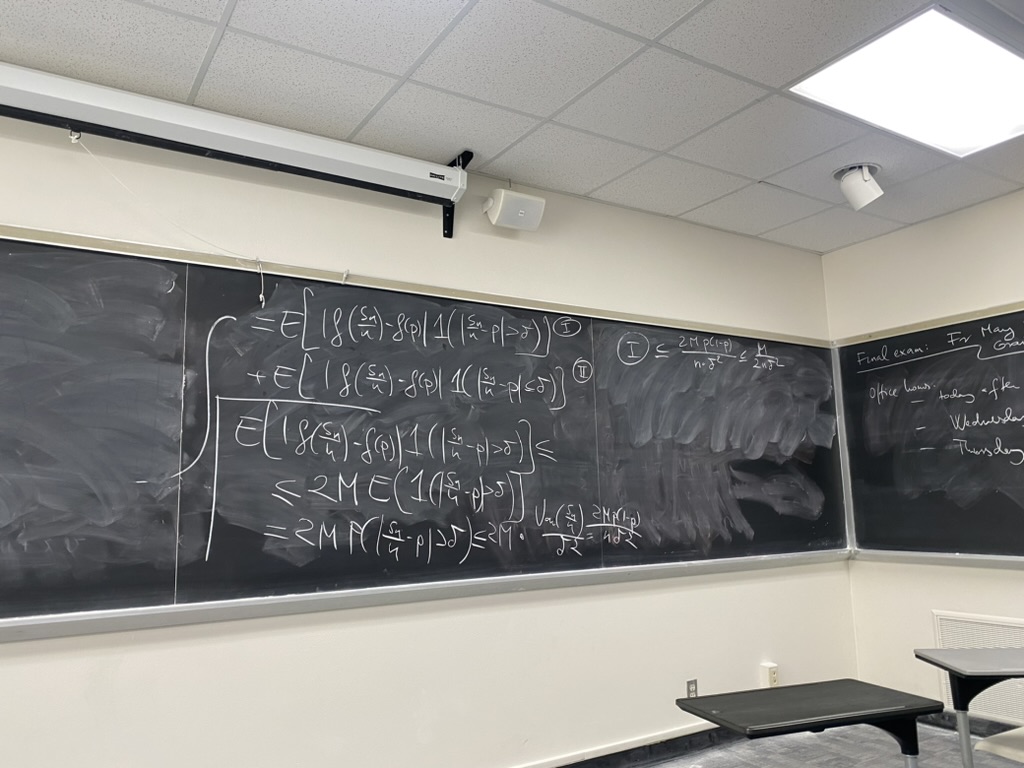 = E[|f(Sn/n) - f(p)| 1(|Sn/n - p| > δ)] I
+ E[|f(Sn/n) - f(p)| 1(|Sn/n - p| ≤ δ)] II
E[|f(Sn/n) - f(p)| 1(|Sn/n - p| > δ)] ≤
≤ 2M E[1(|Sn/n - p| > δ)]
= 2M P(|Sn/n - p| > δ) ≤ 2M · Var(Sn/n)/δ² = 2Mp(1-p)/nδ²
I ≤ 2Mp(1-p)/n·δ² ≤ M/2nδ²
Final exam: Fr May
Office hours:
- today after
- Wednesday
- Thursday